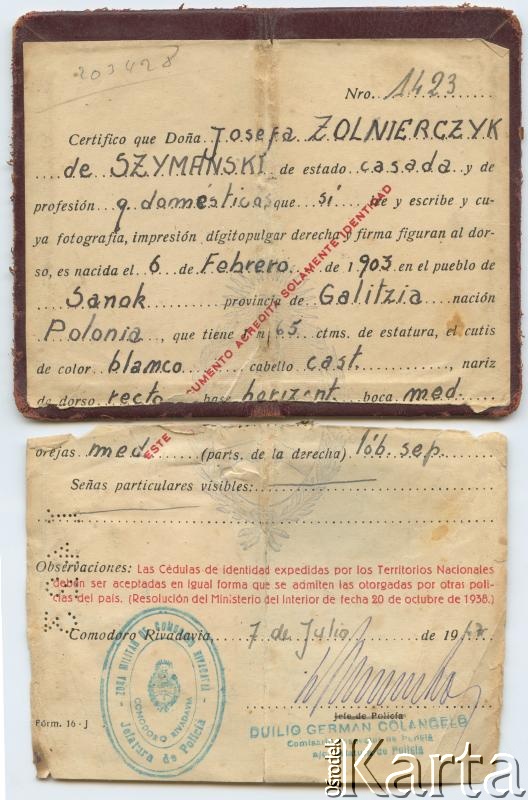 203428
Nro. 1423
Certifico que Doña Josefa ZOLNIERCZYK
de SZYMANSKI de estado casada y de
profesión q. doméstica, que sí de y escribe y cu-
ya fotografía, impresión dígitopulgar derecha y firma figuran al dor-
so, es nacida el 6 de Febrero de 1903 en el pueblo de
Sanok provincia de Galitzia nación
Polonia, que tiene 1 m 65 ctms. de estatura, el cutis
de color blanco cabello cast., nariz
de dorso recto base horizont. boca med.
ESTE DOCUMENTO ACREDITA SOLAMENTE IDENTIDAD
orejas med. (parts. de la derecha) lób. sep.
Señas particulares visibles:
Observaciones: Las Cédulas de identidad expedidas por los Territorios Nacionales
deben ser aceptadas en igual forma que se admiten las otorgadas por otras poli-
cías del país. (Resolución del Ministerio del Interior de fecha 20 de octubre de 1938.)
Comodoro Rivadavia, 7 de Julio de 1947
ZONA MILITAR DE COMODORO RIVADAVIA
COMODORO RIVADAVIA
Jefatura de Policía
Jefe de Policía
DUILIO GERMAN COLANGELO
Fórm. 16 - J
Ośrodek
Karta